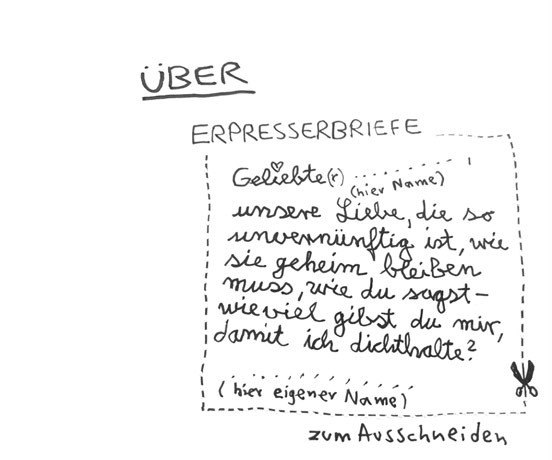 ÜBER
ERPRESSERBRIEFE
Geliebte(r) ..........,
(hier Name)
unsere Liebe, die so
unvernünftig ist, wie
sie geheim bleiben
muss, wie du sagst –
wieviel gibst du mir,
damit ich dichthalte?
..........
(hier eigener Name)
zum Ausschneiden